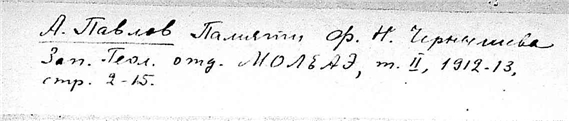 А. Павлов Памяти Ф. Н. Чернышева
Зап. Геол. отд. МОЛЕАЭ, т. II, 1912-13,
стр. 2-15.